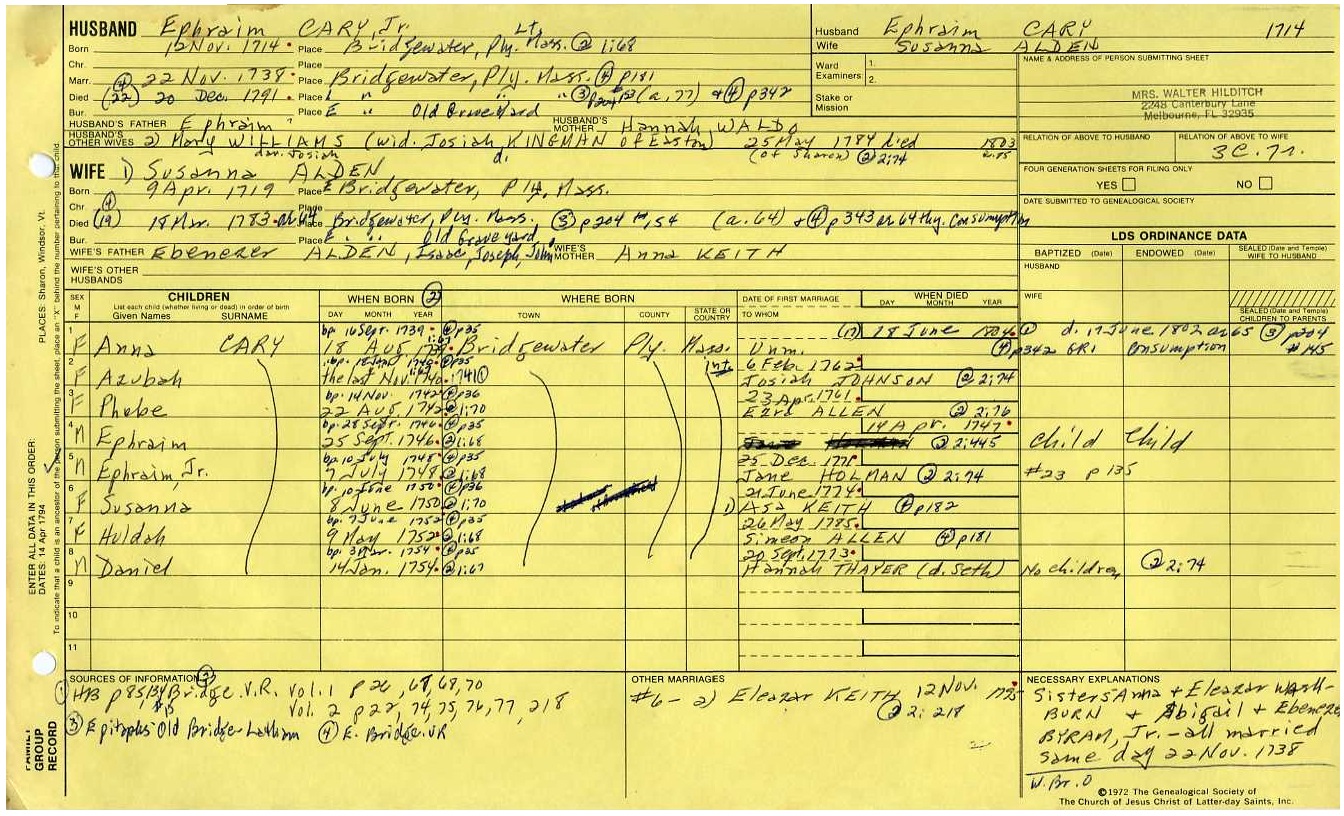 HUSBAND Ephraim CARY, Jr. Lt.
Born 12 Nov. 1714 Place Bridgewater, Ply. Mass. ② 1:68
Chr. Place
Marr. ④ 22 Nov. 1738 Place Bridgewater, Ply. Mass. ④ p181
Died (22) 20 Dec. 1791 Place " " " ③ (a, 77) & ④ p342
Bur. Place E Old Graveyard
HUSBAND'S FATHER Ephraim HUSBAND'S MOTHER Hannah WALDO
HUSBAND'S OTHER WIVES 2) Mary WILLIAMS (wid. Josiah KINGMAN of Easton) 25 May 1784 died 1803
dau. Josiah d. (of Sharon) ② 2:74 2:75
Husband Ephraim CARY 1714
Wife Susanna ALDEN
Ward
Examiners: 1.
2.
Stake or
Mission
NAME & ADDRESS OF PERSON SUBMITTING SHEET
MRS. WALTER HILDITCH
2248 Canterbury Lane
Melbourne, FL 32935
RELATION OF ABOVE TO HUSBAND RELATION OF ABOVE TO WIFE
3C.7r.
FOUR GENERATION SHEETS FOR FILING ONLY
YES NO
DATE SUBMITTED TO GENEALOGICAL SOCIETY
WIFE 1) Susanna ALDEN
Born 9 Apr. 1719 Place E Bridgewater, Ply. Mass.
Chr. ④ Place
Died (19) 18 Mar. 1783 ae 64 Place Bridgewater, Ply. Mass. ③ p204 #154 (a. 64) & ④ p343 ae 64th y. Consumption
Bur. Place E " " Old Graveyard
WIFE'S FATHER Ebenezer ALDEN, Isaac, Joseph, John WIFE'S MOTHER Anna KEITH
WIFE'S OTHER HUSBANDS
LDS ORDINANCE DATA
BAPTIZED (Date) ENDOWED (Date) SEALED (Date and Temple) WIFE TO HUSBAND
HUSBAND
WIFE
SEALED (Date and Temple) CHILDREN TO PARENTS
SEX M F
CHILDREN
List each child (whether living or dead) in order of birth
Given Names SURNAME
WHEN BORN ②
DAY MONTH YEAR
WHERE BORN
TOWN COUNTY STATE OR COUNTRY
DATE OF FIRST MARRIAGE
TO WHOM
WHEN DIED
DAY MONTH YEAR
1 bp 16 Sept. 1739 ④ p35 (17) 18 June d. 17 June 1802 ae 65 ③ p204
F Anna CARY 18 Aug Bridgewater Ply. Mass. Unm. ④ p342 GR1 Consumption #145
2 ④ p35 Int. 6 Feb. 1762
F Azubah the last Nov. 1740 1741 ① Josiah JOHNSON ② 2:74
3 bp. 14 Nov. 1742 ④ p36 23 Apr. 1761
F Phebe 22 Aug 1742 ② 1:70 Ezra ALLEN ② 2:76
4 bp. 28 Sept. 1746 ④ p35 14 Apr. 1747
M Ephraim 25 Sept. 1746 ② 1:68 ② 2:445 Child Child
5 bp. 10 July 1748 ④ p35 25 Dec. 1771
M Ephraim, Jr. 7 July 1748 ② 1:68 Jane HOLMAN ② 2:74 #23 p 135
6 bp. 10 June 1750 ④ p36 21 June 1774
F Susanna 8 June 1750 ② 1:70 1) Asa KEITH ④ p182
7 bp. 7 June 1752 ④ p35 26 May 1785
F Huldah 9 May 1752 ② 1:68 Simeon ALLEN ④ p181
8 bp. 3 Mar. 1754 ④ p35 20 Sept. 1773
M Daniel 14 Jan. 1754 ② 1:67 Hannah THAYER (d. Seth) No children ② 2:74
9
10
11
SOURCES OF INFORMATION
① HB p 85, 134 ② Bridge. V.R. Vol. 1 p 26, 67, 68, 70
#15 Vol. 2 p 22, 74, 75, 76, 77, 218
③ Epitaphs Old Bridge Latham ④ E. Bridge. VR
OTHER MARRIAGES
#6 - 2) Eleazar KEITH 12 Nov.
② 2:218
NECESSARY EXPLANATIONS
Sisters Anna + Eleazar WASH-
BURN + Abigail + Ebenezer
BYRAM, Jr. - all married
same day 22 Nov. 1738
W. Br. O
©1972 The Genealogical Society of
The Church of Jesus Christ of Latter-day Saints, Inc.
PLACES: Sharon, Windsor, Vt.
ENTER ALL DATA IN THIS ORDER:
DATES: 14 Apr 1794
To indicate that a child is an ancestor of the person submitting the sheet, place an "X" behind the number pertaining to that child.
FAMILY
GROUP
RECORD